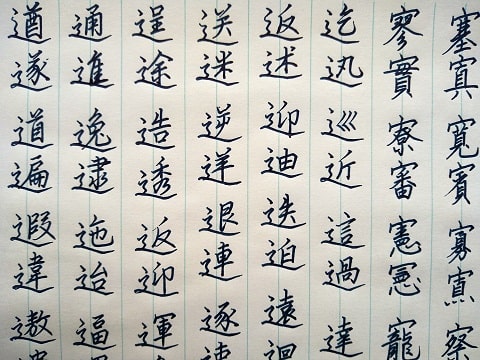 塞寬賓寡察
寥實寮審憲寵
迄迅巡近這過達
返述迎迪迭迫遠迴
送迷逆退連逐
逞途造透返迎運
通進逸逮迤迨逼
遒遂道遍遐違遨